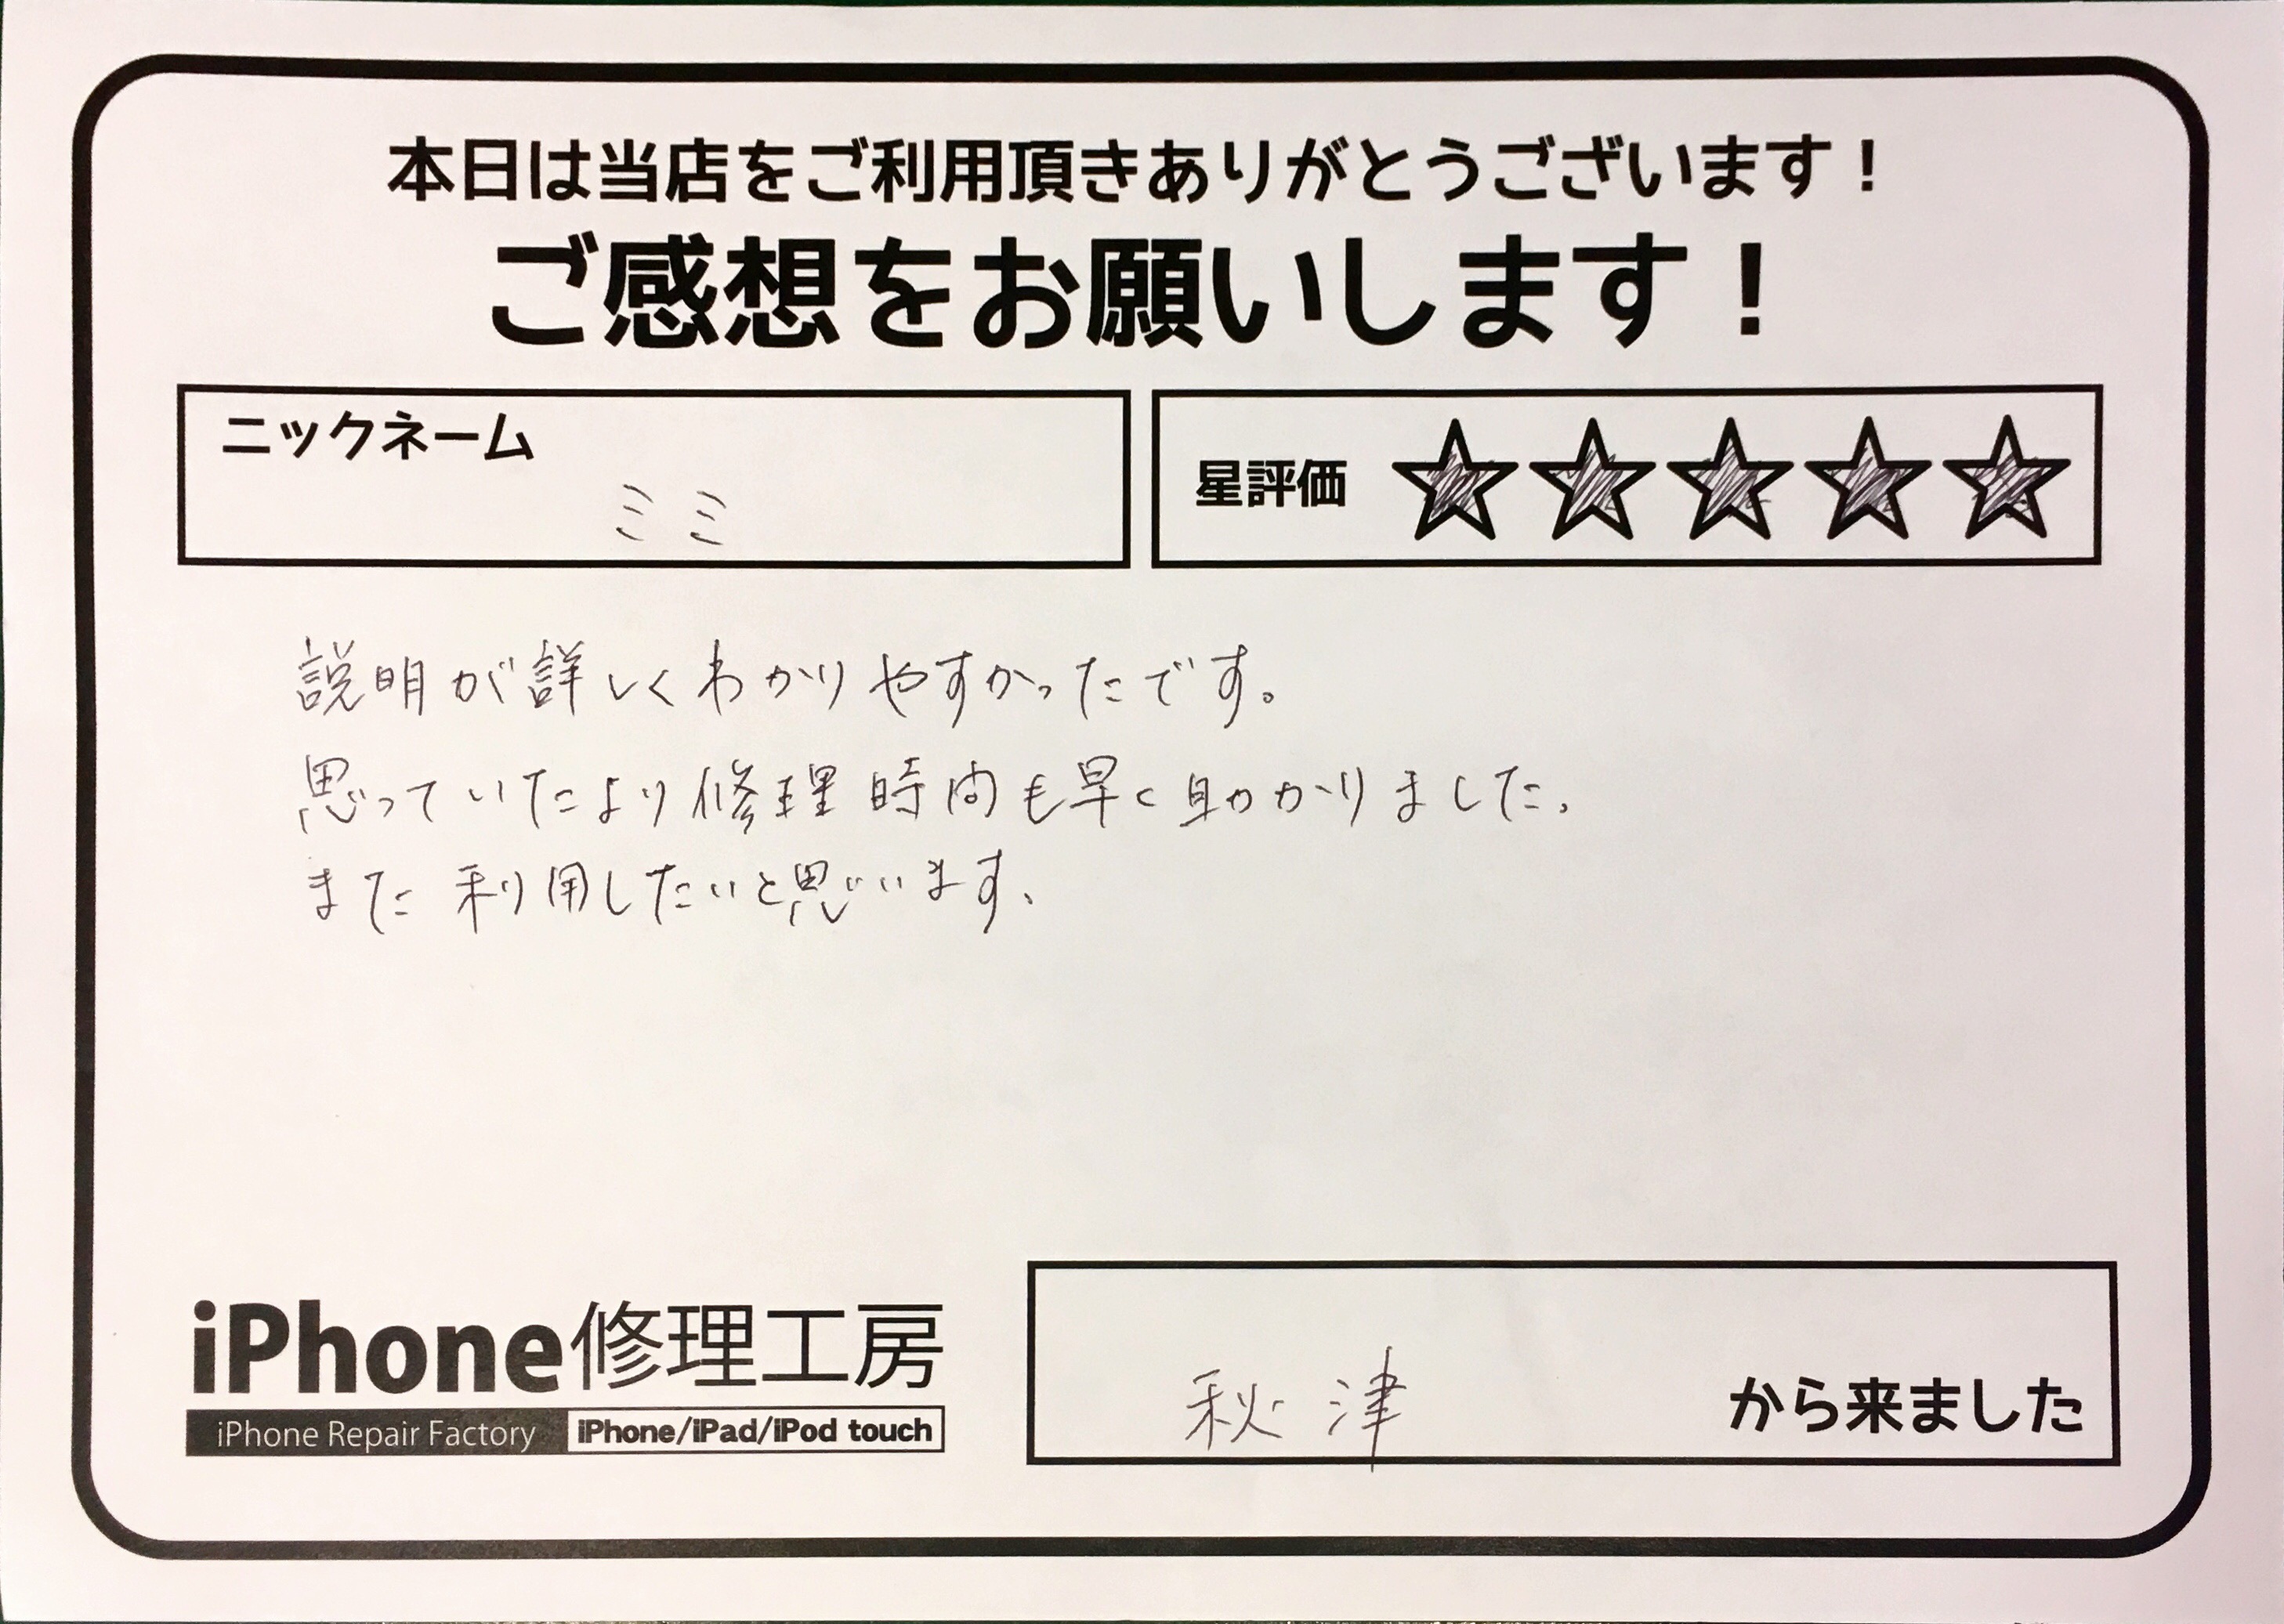 本日は当店をご利用頂きありがとうございます！
ご感想をお願いします！
ニックネーム
ミミ
星評価 ★★★★★
説明が詳しくわかりやすかったです。
思っていたより修理時間も早く助かりました。
また利用したいと思います、
iPhone修理工房
iPhone Repair Factory iPhone/iPad/iPod touch
秋津 から来ました